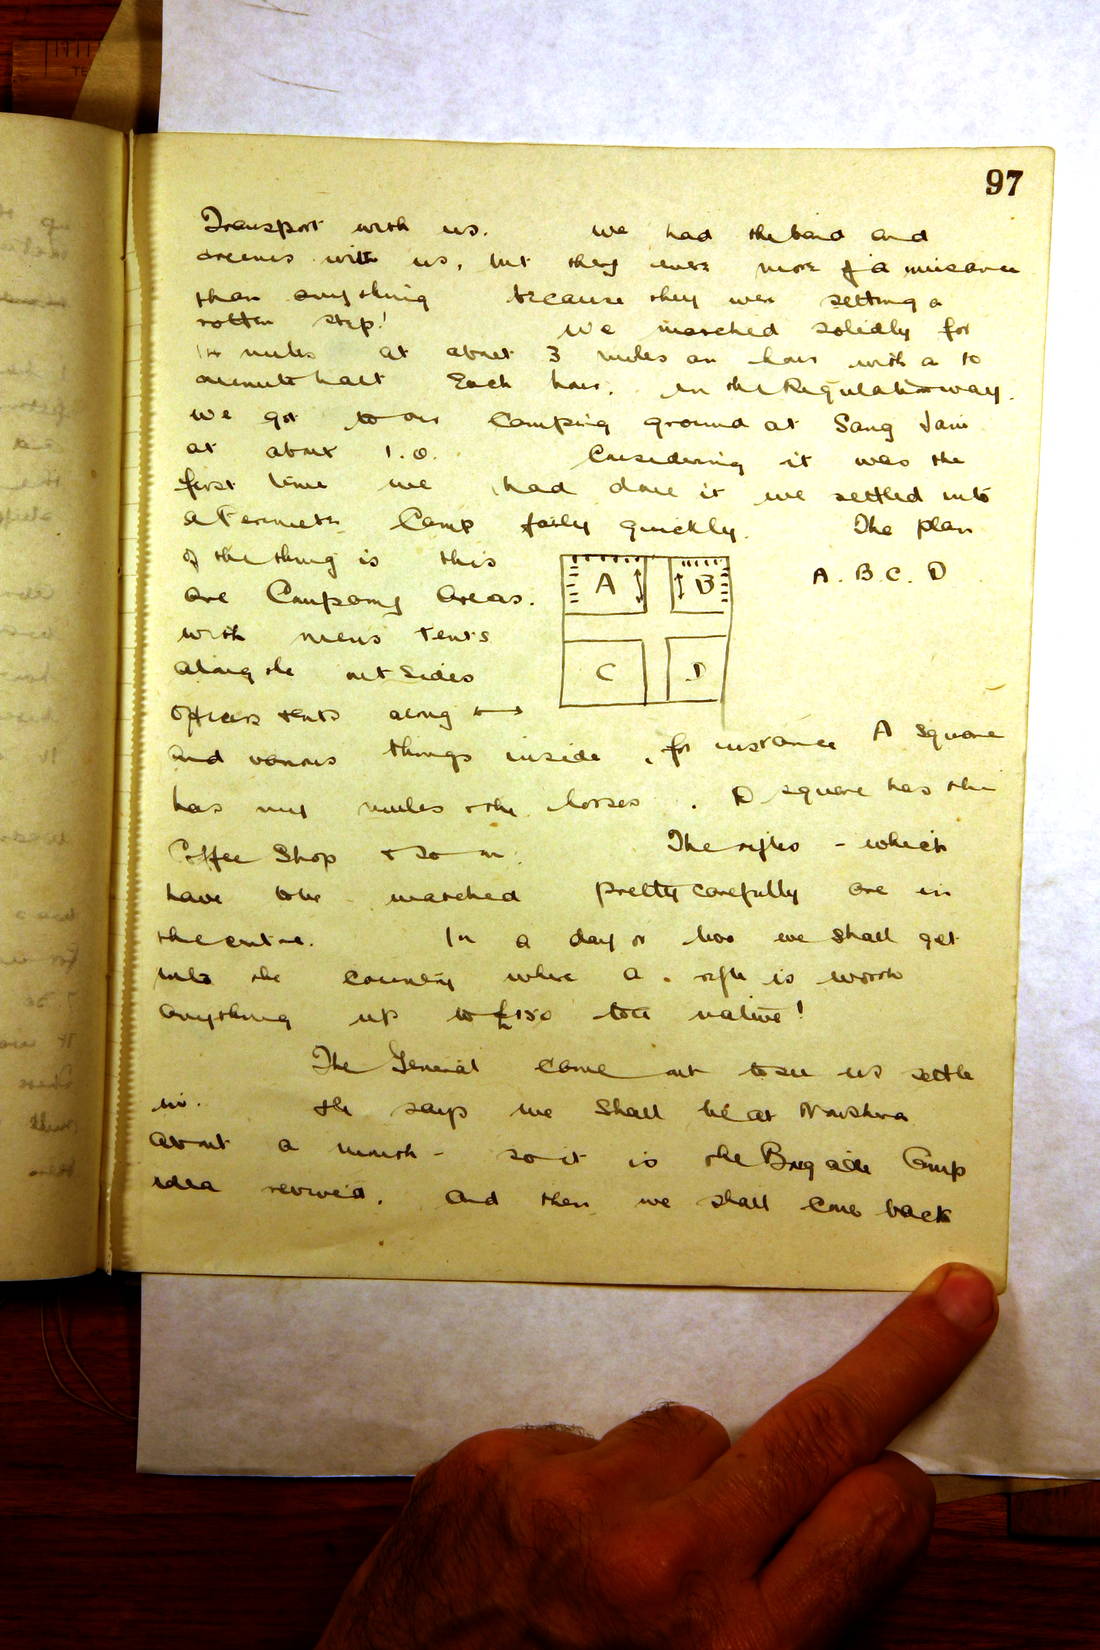 97
Transport with us. we had the band and
drums with us, but they were more of a nuisance
than anything because they were setting a
rotten step! We marched solidly for
14 miles at about 3 miles an hour with a 10
minute halt Each hour. in the Regulation way.
we got to our Camping ground at Sang Jani
at about 1.0. Considering it was the
first time we had done it we settled into
a Perimeter Camp fairly quickly. The plan
of the thing is this A. B. C. D
are Company Areas.
with mens Tents
along the outsides
officers tents along ↔
A B
C D
and various things inside, for instance A Square
has my mules & the horses. D square has the
Coffee Shop & so on. The rifles - which
have to be watched pretty carefully are in
the centre. In a day or two we shall get
into the country where a rifle is worth
anything up to £150 to a native!
The General came out to see us settle
in. He says we shall be at Nowshera
about a month - so it is the Brigade Camp
idea revived. And then we shall come back